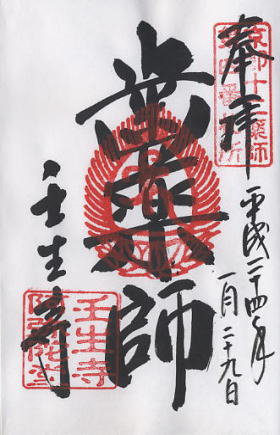 奉拝
京都十二薬師
第四番札所
平成二十四年
一月二十九日
歯薬師
壬生寺
壬生寺
阿弥陀堂